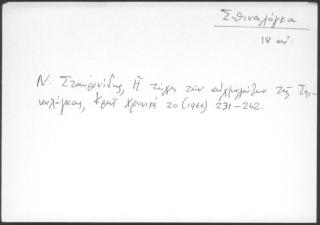 Σπιναλόγκα
18 αι.
Ν. Σταυρινίδης, Ἡ τύχη τῶν αἰχμαλώτων τῆς Σπι-
ναλόγκας, Κρητ Χρονικά 20 (1966)